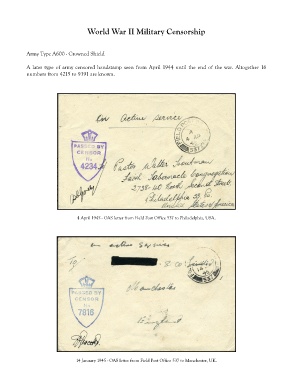 World War II Military Censorship
Army Type A600 - Crowned Shield
A later type of army censored handstamp seen from April 1944 until the end of the war. Altogether 14
numbers from 4215 to 9391 are known.
On Active service
PASSED BY
CENSOR
No
4234
Pastor Walter
Faith Tabernacle Congregation
2738-40 North Second Street
Philadelphia 33 Pa.
United States of America
4 April 1945 - OAS letter from Field Post Office 537 to Philadelphia, USA.
on active service
To,
PASSED BY
CENSOR
No
7816
Manchester
England
14 January 1945 - OAS letter from Field Post Office 537 to Manchester, UK.